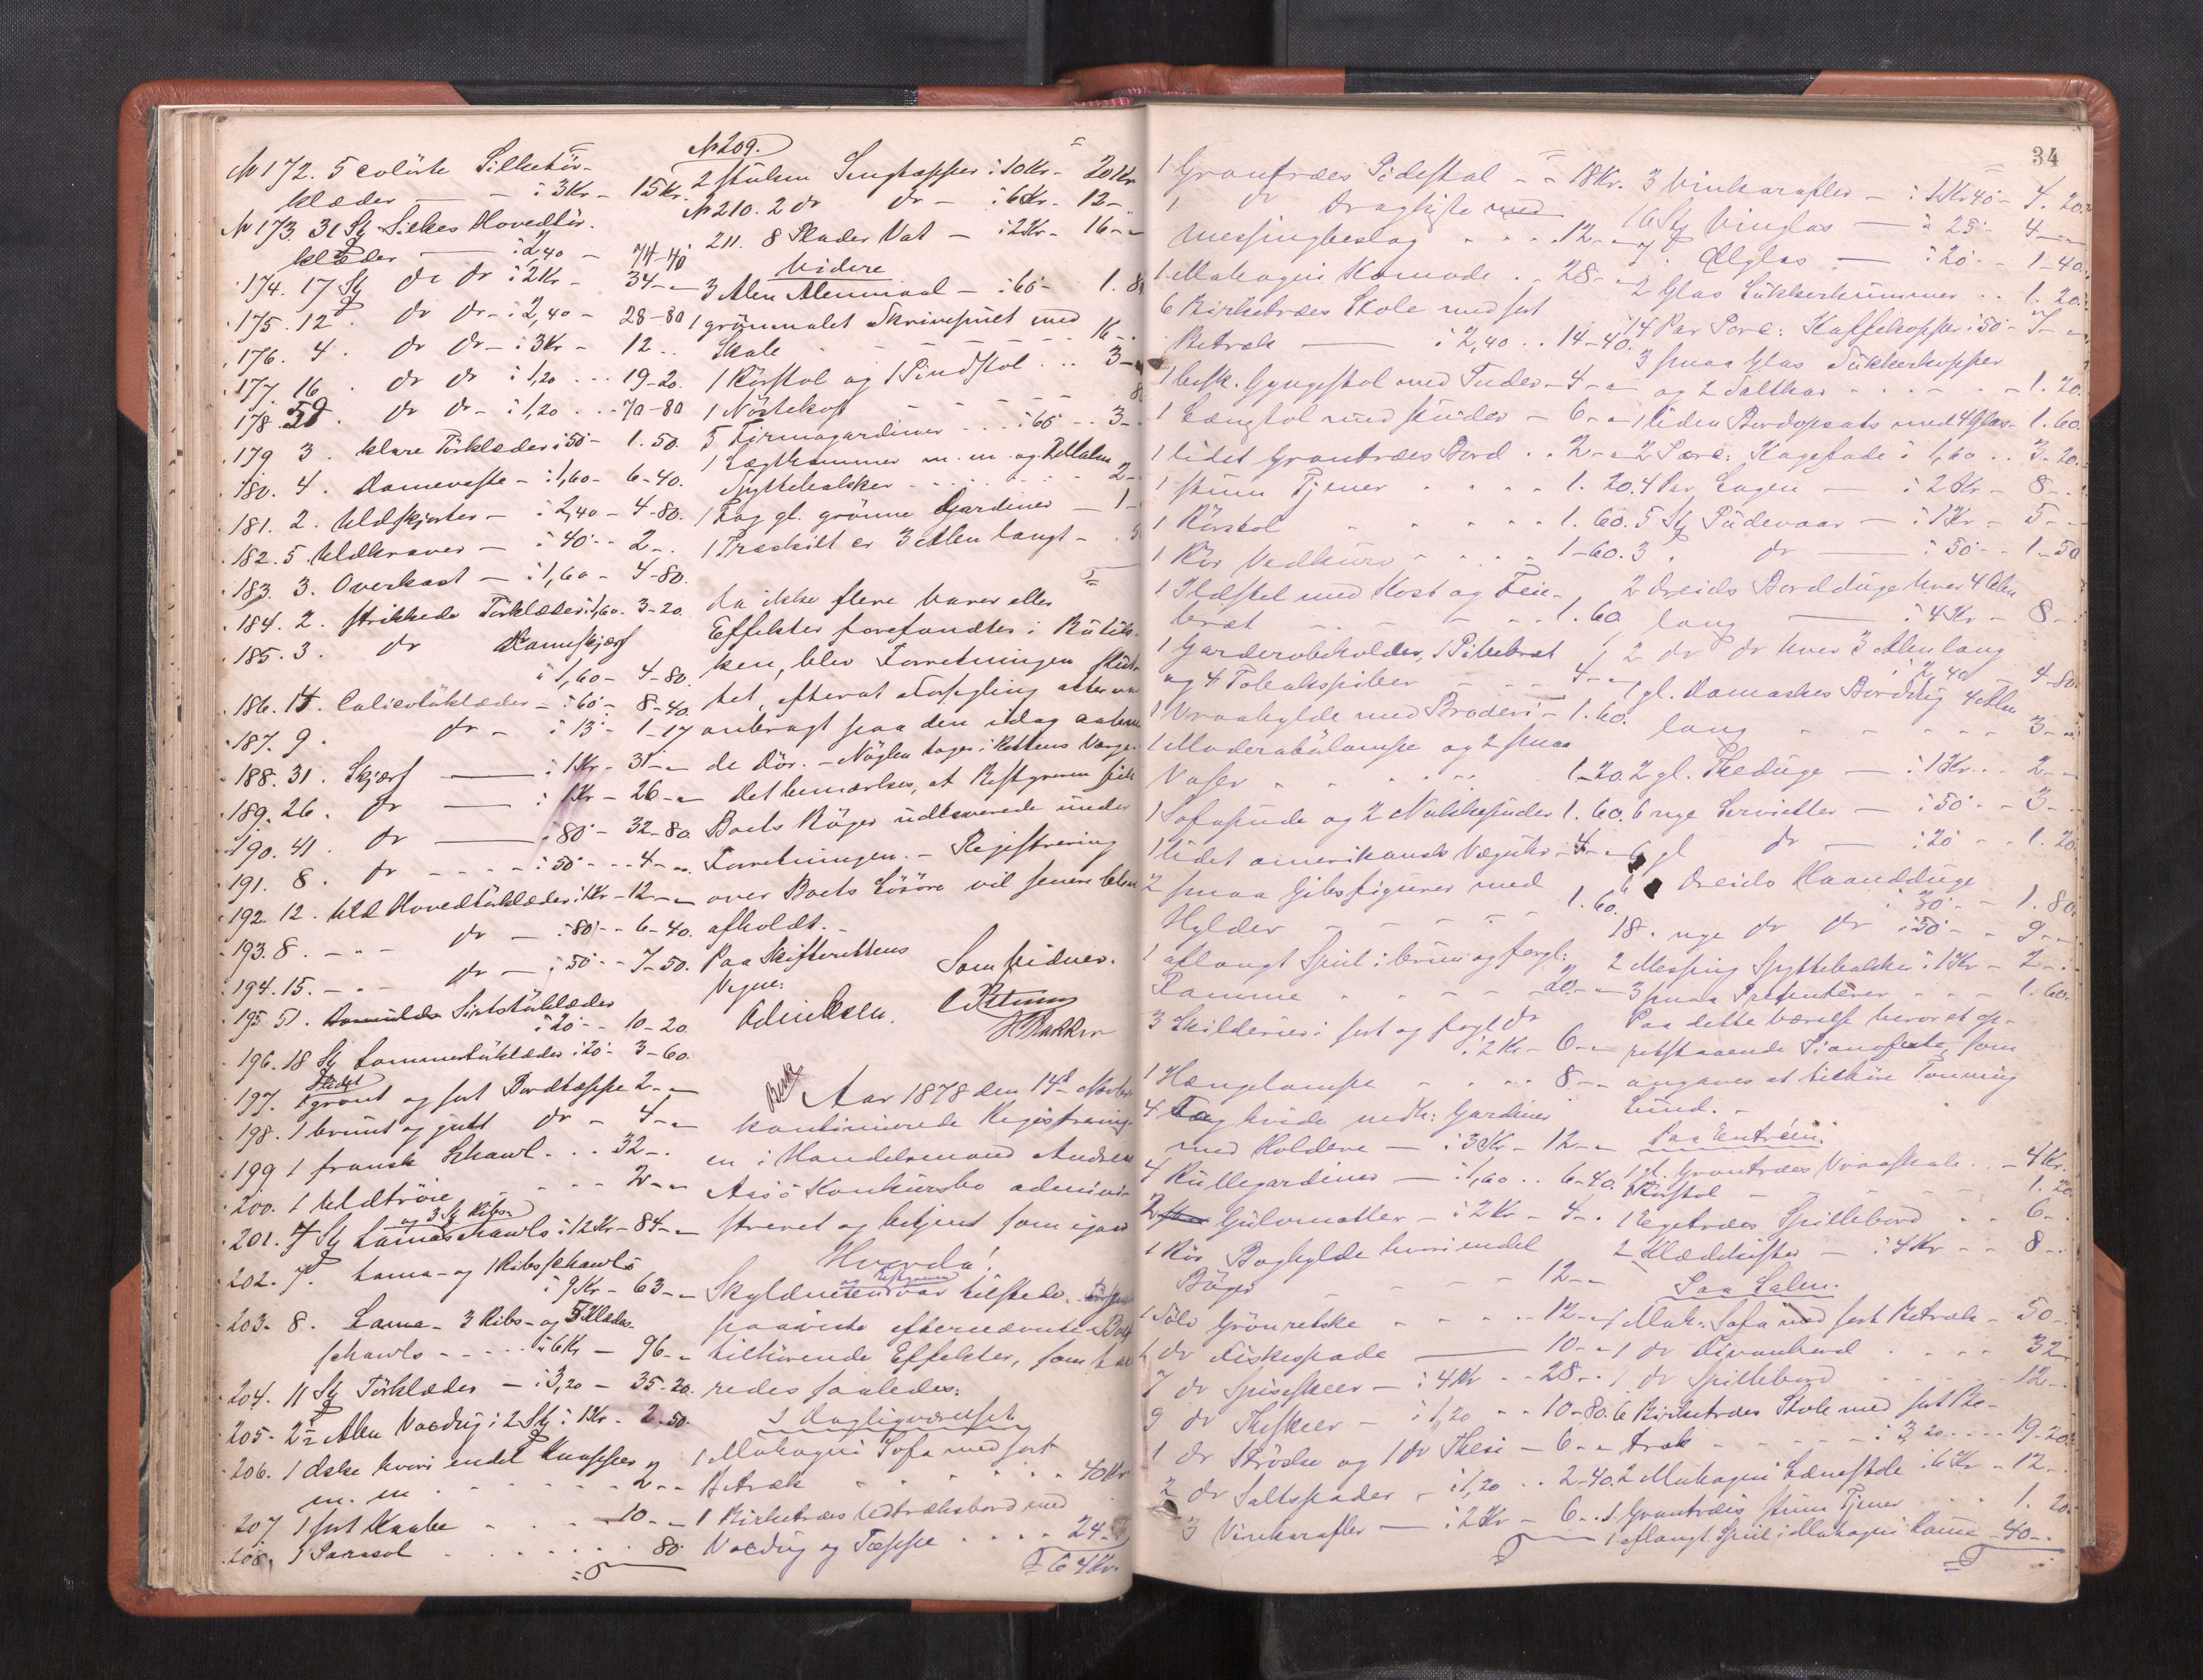 № 172. 5 colörte Silketör-
klæder — à 3 Kr - 15 Kr.
№ 173. 31 St Silkes Hovedtör-
klæder — à 2,40 - 74-40
174. 17 St dr dr à 2 Kr - 34 -
175. 12 . dr dr - à 2,40 - 28-80
176. 4 . dr dr - à 3 Kr - 12 ..
177. 16 . dr dr à 1,20 ... 19-20.
178. 59 . dr dr - à 1,20 ... 70-80
179 3 . klare Törklæder à 50 - 1.50.
180. 4 . Dameveste - à 1,60 - 6-40.
181. 2 . Uldskjorter - à 2,40 - 4-80.
182. 5 . Uldkraver - à 40 - 2 - .
183. 3. Overkast - à 1,60 - 4-80.
184. 2. strikkede Törklæder à 1,60. 3-20.
185. 3. dr Dameskjærf
à 1,60 - 4-80.
186. 14. Calicotörklæder - à 60 - 8-40.
187. 9 . dr - à 13 - 1-17
188. 31. Skjærf — à 1 Kr - 31 -
189. 26. dr — à 1 Kr - 26 -
190. 41 . dr — à 80 - 32-80.
191. 8 . dr - - - - à 50 - - 4 -
192. 12 . Uld Hovedtörklæder à 1 Kr - 12 -
193. 8. - - - dr - à 80 - - 6-40.
194. 15. - - - dr - à 50 - - 7-50.
195 51. Sirtstörklæder
à 20 - - 10-20.
196. 18 St Sommertörklæder à 20 - 3-60.
197. 1 grönt og sort Bordtæppe 2 -
198. 1 brunt og gult dr - 4 -
199 1 fransk Schawl . . . 32 - .
200. 1 Uldtröie - - - - 2 -
og 3 St Ribs-
201. 7 St Lamaschawls à 12 Kr - 84 -
202. 7. Lama- og 1 Ribsschawls
à 9 Kr - 63 -
203. 8. Lama- 3 Ribs- og 5 Klædes-
schawls - - - - à 6 Kr - 96 -
204. 11 St Törklæder - à 3,20 - 35-20.
205. 2½ Alen Voxdug i 2 St à 1 Kr - 2-50.
206. 1 Æske hvori endel Knapper
m. m . - - - - - 2 - -
207 1 sort Kaabe - - - - 10 -
208. 1 Parasol . . . . . . 80
№ 209.
2 stukne Sengtæpper à 10 Kr - 20 Kr
№ 210. 2 dr dr - à 6 Kr - 12 -
211. 8 Plader Vat - à 2 Kr - 16 -
Videre
3 Alen Alenmaal - à 60 - 1.80
1 grönmalet Skrivepult med
Skab - - - - - 16 -
1 Rörstol og 1 Pindstol . . . 3 -
1 Nörtekop - - - - - 80
5 Firmagardiner - - - à 60 - - 3 -
1 Lægthammer m. m. og 2 Malm
Spyttebakker - - - - - 2 -
1 Fag gl. grönne Gardiner - 1 -
1 Træskilt ca 3 Alen langt - .
da ikke flere Varer eller
Effekter forefandtes i Butik-
ken, blev Forretningen slut-
tet, efterat Forsegling atter var
anbragt paa den idag aabne-
de Dör. - Nöglen toges i Rettens Værge.
Det bemærkes, at Bestyreren fik
Boets Böger udleverede under
Forretningen. - Registrering
over Boets Lösöre vil senere blive
afholdt. -
Paa Skifterettens
Vegne:
Som Vidner.
Aar 1878 den 14de Novbr
kontinuerede Registrering-
en i Handelsmand Andreas
Aasö Konkursbo admini-
streret og betjent som igaar
Hvorda!
og Bestyreren
Skyldneren var tilstede.
paaviste efternævnte Boet
tilhörende Effekter, som
redes saaledes:
I Dagligværelset
1 Mahogni Sofa med sort
Betræk - - - - - - 40 Kr
1 Birketræes Udtræksbord med
Voxdug og Tæppe . . . . 24 -
64 Kr.
34
1 Grantræes Pidestal - - 18 Kr.
1 dr Dragkiste med
Messingbeslag - - - . 12 -
1 Mahogni Komode . . 28 -
6 Birketræes Stole med sort
Betræk — à 2,40 . . 14-40.
1 besk. Gyngestol med Puder - 4 -
1 Længstol med Puder - 6 -
1 lidet Grantræes Bord . . 2 -
1 stum Tjener - - - - 1. 20.
1 Rörstol - - - - - 1. 60.
1 Rör Vedkurv - - - - 1-60.
1 Ildstel med Kost og Feie-
bræt - - - - - 1. 60
1 Garderobeholder, 1 Pibebræt
og 4 Tobakspiber - - - 4 -
1 Vraahylde med Broderi - 1. 60.
1 Moderatörlampe og 2 smaa
Vaser - - - - - 1-20.
1 Sofapude og 2 Nakkepuder 1. 60.
1 lidet amerikansk Væguhr - 4 -
2 smaa Gibsfigurer med
Hylder - - - - - 1. 60.
1 aflangt Speil i brun og forgl:
Ramme - - - - - 20 -
3 Skilderier i sort og forgl dr
à 2 Kr - 6 -
1 Hængelampe - - - - 8 -
4 Fag hvide nedh: Gardiner
med Holdere - à 3 Kr - 12 -
4 Rullegardiner - à 1,60 . . 6-40.
2 Gulvmatter - à 2 Kr - 4 - .
1 Rör Boghylde hvori endel
Böger - - - - 12 -
1 Sölv Grönretske - - - - 12 -
1 dr Fiskespade — 10 -
7 dr Spiseskeer - à 4 Kr - - 28 - .
9 dr Theskeer - à 1,20 - - 10-80.
1 dr Ströske og 1 dr Thesi - 6 -
2 dr Saltspader - à 1,20 . . 2-40.
3 Vinkarafler - à 2 Kr - 6 - .
3 Vinkarafler - à 1 Kr 40 - 4. 20.
16 St Vinglas — à 25 - 4 -
7 . Ølglas — à 20 - - 1-40.
2 Glas Sukkerkummer . . 1. 20.
14 Par Porc: Kaffekopper à 50 - 7 -
3 smaa Glas Sukkerkopper
og 2 Saltkar - - - - - 1. 20.
1 liden Bordopsats med 4 Glas - 1. 60.
2 Porc: Kagefade à 1,60 . . 3-20.
4 Par Lagen — à 2 Kr - 8 - .
5 St Pudevaar — à 1 Kr - 5 -
3 . dr — à 50 - - 1-50
2 Dreids Bordduge hver 4 Alen
lang — à 4 Kr - 8 -
2 dr dr hver 3 Alen lang
à 2,40 - 4-80.
1 gl. Damaskes Borddug 4 Alen
lang - - - - - 3 -
2 gl. Theduge — à 1 Kr . . 2 -
6 nye Servietter - à 50 - - 3 -
6 gl dr - à 20 - - 1. 20.
6 Dreids Haandduge
à 30 - - 1. 80.
18. nye dr dr à 50 - - 9 -
2 Messing Spyttebakker à 1 Kr - 2 - .
3 smaa Presenterer - - - 1. 60.
Paa dette Værelse beror et op-
retstaaende Pianoforte, som
angaves at tilhöre Tönning
Lund. -
Paa Entréen:
1 gl. Grantræes Vraaskab . . - 4 Kr.
1 Rörstol - - - - - 1. 20.
1 Egetræes Spillebord . . 6 - .
2 Klædekister - à 4 Kr - - 8 - .
Paa Salen:
1 Mah: Sofa med sort Betræk - 50 -
1 dr Divanbord . . . . 32
1 dr Spillebord - - - - 12 -
6 Birketræes Stole med sort Be-
træk - - - - - à 3,20 - - - 19-20.
2 Mahogni Lænestole à 6 Kr - 12 -
1 Grantræes stum Tjener . . . 1. 20.
1 aflangt Speil i Mahogni Ramme - 40 - .